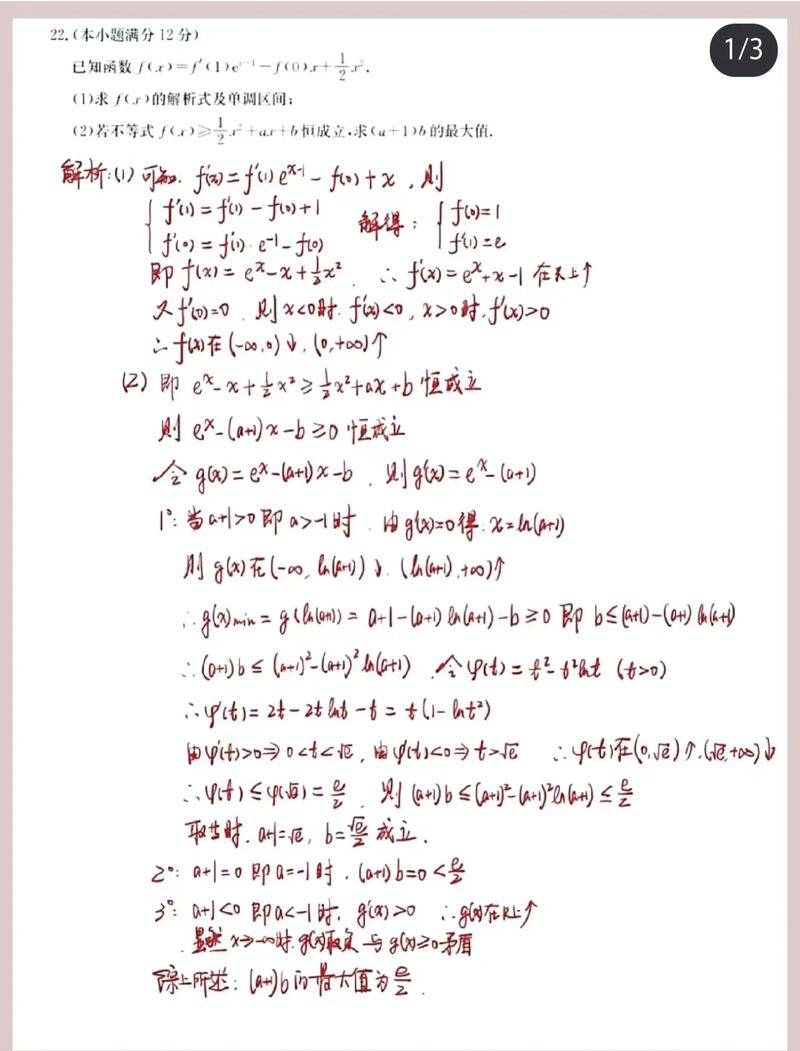 1/3
22.(本小题满分12分)
已知函数 f(x)=f′(1)eˣ⁻¹-f(0)x+½x².
(1)求 f(x)的解析式及单调区间;
(2)若不等式 f(x)≥½x²+ax+b恒成立,求(a+1)b的最大值.
解析:(1) 可知. f′(x)=f′(1)eˣ⁻¹-f(0)+x, 则
{ f′(1)=f′(1)-f(0)+1 解得: { f(0)=1
f′(0)=f′(1)·e⁻¹-f(0) f′(1)=e
即 f(x)=eˣ-x+½x². ∴ f′(x)=eˣ+x-1 在R上↑
又 f′(0)=0. 则 x<0时. f′(x)<0, x>0时. f′(x)>0
∴ f(x)在(-∞,0)↓, (0,+∞)↑
(2) 即 eˣ-x+½x²≥½x²+ax+b 恒成立
则 eˣ-(a+1)x-b≥0 恒成立
令 g(x)=eˣ-(a+1)x-b. 则g′(x)=eˣ-(a+1)
1°: 当 a+1>0 即 a>-1时. 由g′(x)=0得: x=ln(a+1)
则 g(x)在(-∞, ln(a+1))↓. (ln(a+1),+∞)↑
∴ g(x)min=g(ln(a+1))=a+1-(a+1)ln(a+1)-b≥0 即 b≤(a+1)-(a+1)ln(a+1)
∴ (a+1)b≤(a+1)²-(a+1)²ln(a+1). 令 φ(t)=t²-t²lnt (t>0)
∴ φ′(t)=2t-2tlnt-t=t(1-lnt²)
由φ′(t)>0⇒0<t<√e, 由φ′(t)<0⇒t>√e ∴ φ(t)在(0,√e)↑.(√e,+∞)↓
∴ φ(t)≤φ(√e)=e/2. 则 (a+1)b≤(a+1)²-(a+1)²ln(a+1)≤e/2
取当时. a+1=√e, b=√e/2 成立.
2°: a+1=0 即 a=-1时. (a+1)b=0<e/2
3°: a+1<0 即 a<-1时. g′(x)>0 ∴ g(x)在R上↑
显然 x→-∞时. g(x)取负 与 g(x)≥0矛盾
综上所述: (a+1)b的最大值为e/2.